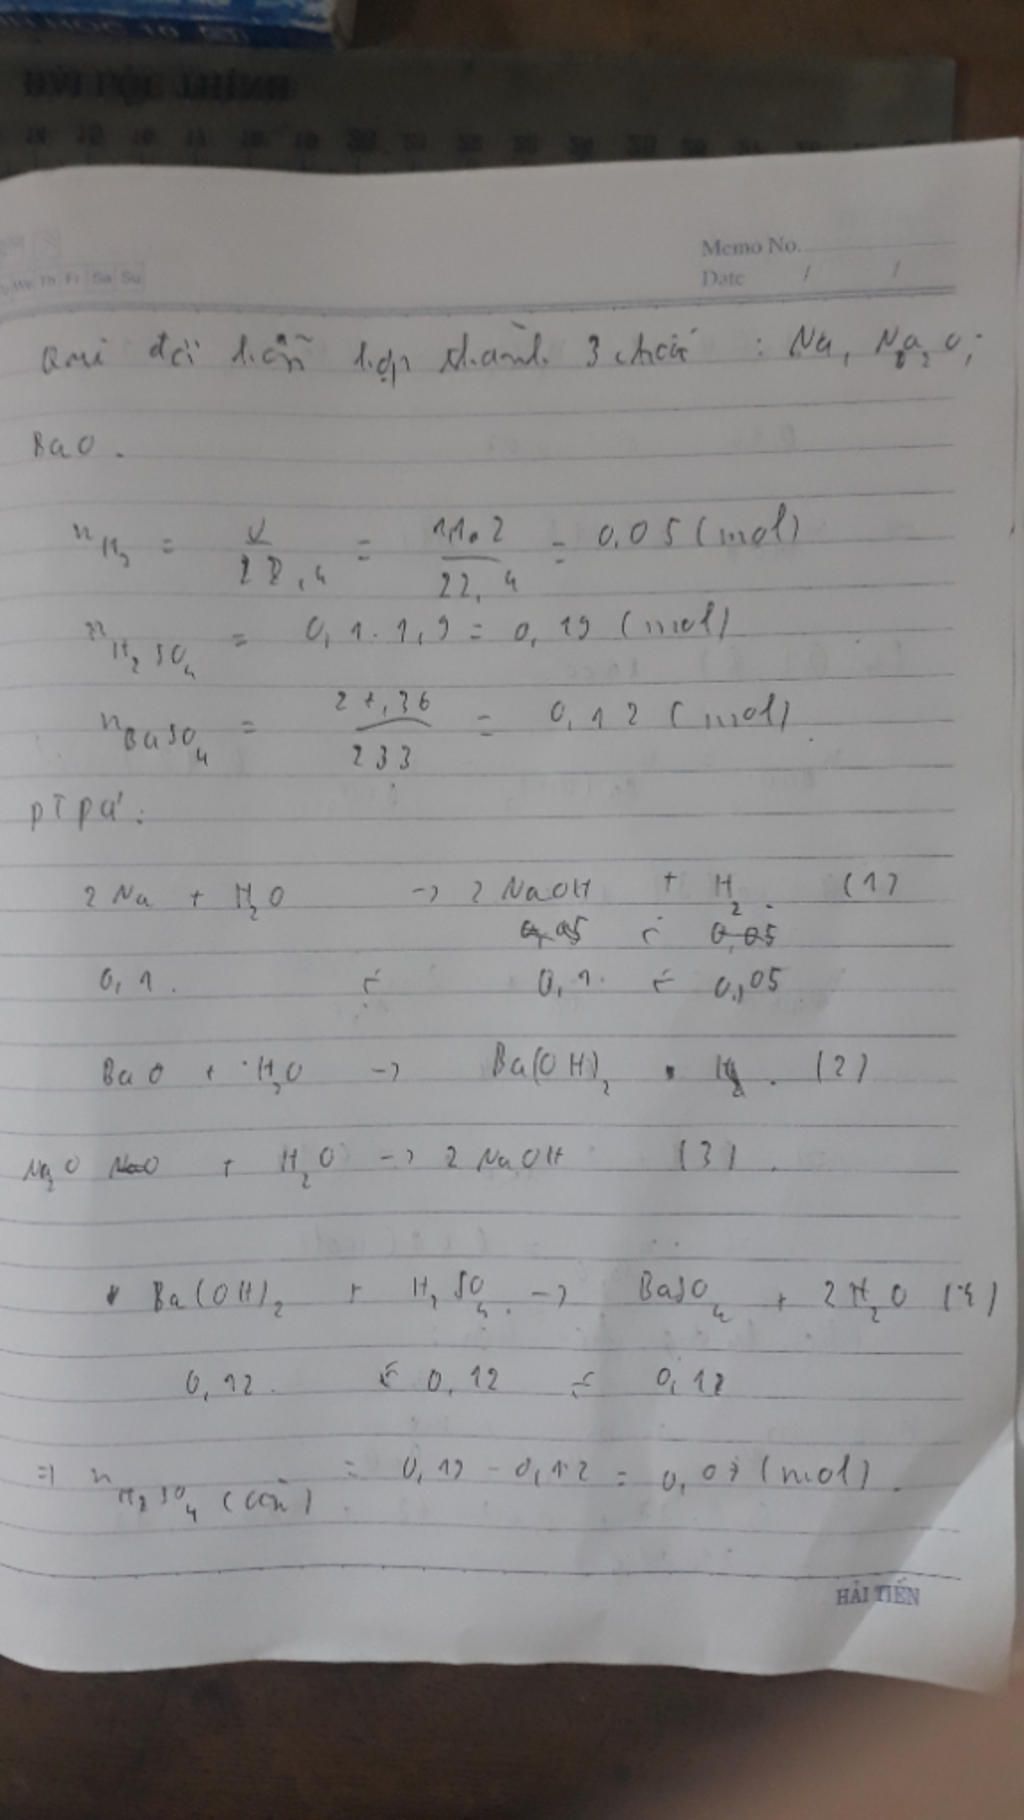 HẢI TIẾN
Memo No.
Date / /
We Th Fr Sa Su
Qui đổi hỗn hợp thành 3 chất : Na, Na2O,
BaO.
nH2 = V/22,4 = 1,1.2/22,4 = 0,05 (mol)
nH2SO4 = 0,1.1,9 = 0,19 (mol)
nBaSO4 = 27,96/233 = 0,12 (mol)
PTPƯ:
2Na + H2O -> 2NaOH + H2. (1)
0,05 ← 0,05
0,1. ← 0,1. ← 0,05
BaO + H2O -> Ba(OH)2 . (2)
Na2O + H2O -> 2NaOH (3).
Ba(OH)2 + H2SO4 -> BaSO4 + 2H2O (4)
0,12. ← 0,12 ← 0,12
=> nH2SO4 (còn) = 0,19 - 0,12 = 0,07 (mol).
HẢI TIẾN